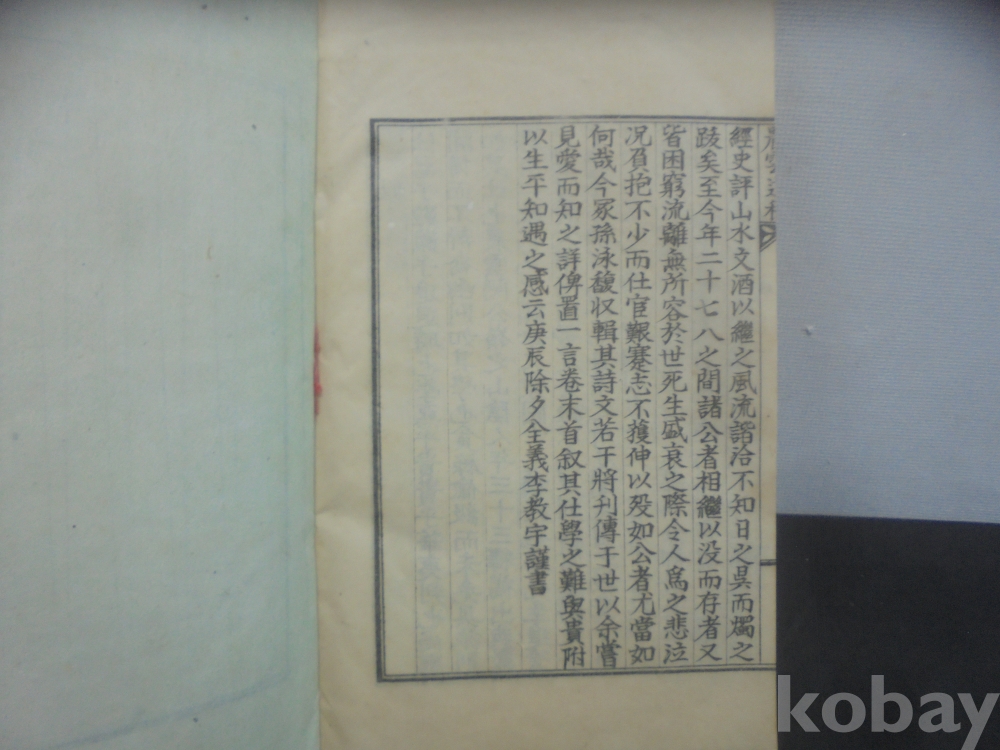 經史評山水文酒以繼之風流諧洽不知日之昃而燭之
跋矣至今年二十七八之間諸公者相繼以没而存者又
皆困窮流離無所容於世死生盛衰之際令人爲之悲泣
况負抱不少而仕宦艱蹇志不獲伸以殁如公者尤當如
何哉今冢孫泳馥収輯其詩文若干將刋傳于世以余嘗
見愛而知之詳俾置一言卷末首叙其仕學之難與貴附
以生平知遇之感云庚辰除夕全義李教宇謹書
kobay